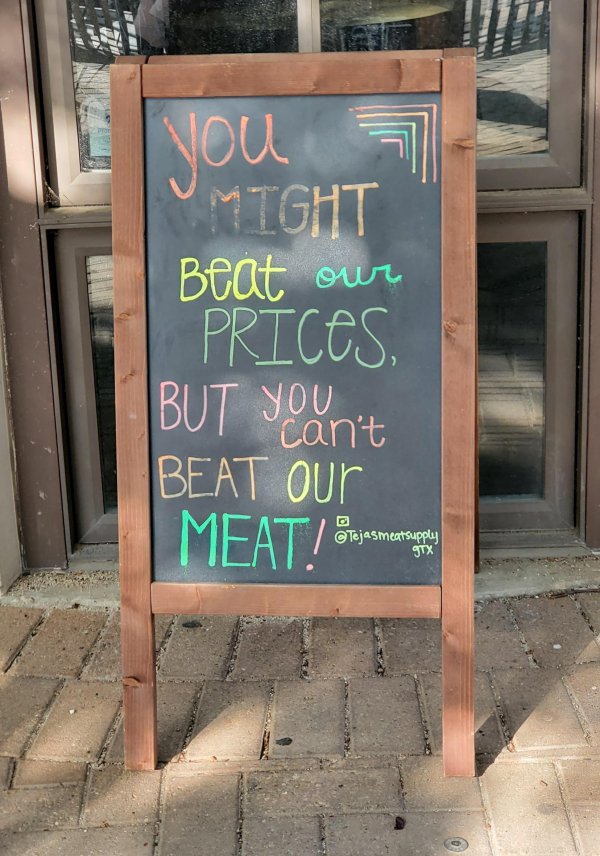 you
MIGHT
Beat our
PRICES,
BUT you
can't
BEAT our
MEAT!
@Tejasmeatsupply
gTX